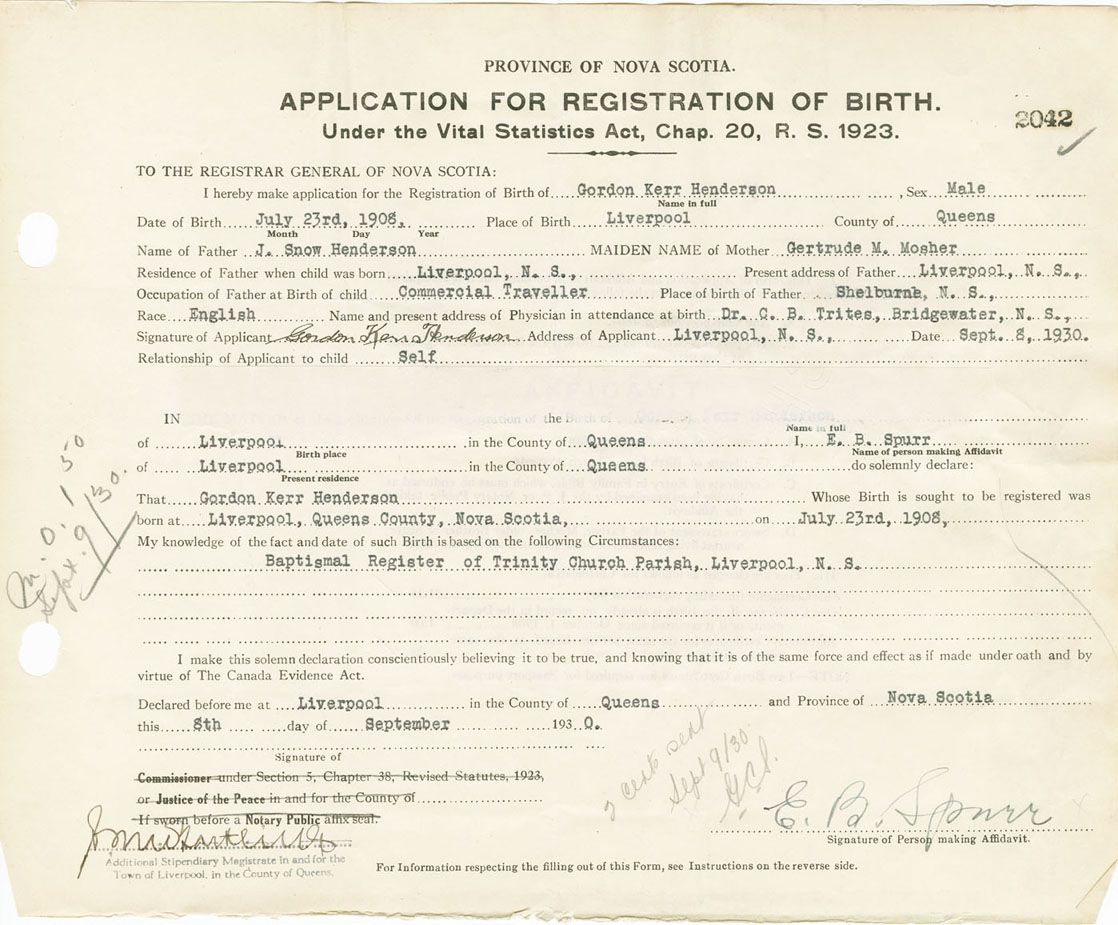 PROVINCE OF NOVA SCOTIA.
APPLICATION FOR REGISTRATION OF BIRTH.
Under the Vital Statistics Act, Chap. 20, R. S. 1923.
2042
TO THE REGISTRAR GENERAL OF NOVA SCOTIA:
I hereby make application for the Registration of Birth of Gordon Kerr Henderson, Sex Male
Name in full
Date of Birth July 23rd, 1908, Place of Birth Liverpool County of Queens
Month Day Year
Name of Father J. Snow Henderson MAIDEN NAME of Mother Gertrude M. Mosher
Residence of Father when child was born Liverpool, N. S., Present address of Father Liverpool, N. S.,
Occupation of Father at Birth of child Commercial Traveller Place of birth of Father Shelburne, N. S.,
Race English Name and present address of Physician in attendance at birth Dr. C. B. Trites, Bridgewater, N. S.,
Signature of Applicant Gordon Kerr Henderson Address of Applicant Liverpool, N. S., Date Sept. 8, 1930.
Relationship of Applicant to child Self
IN the
Name in full
of Liverpool in the County of Queens I, E. B. Spurr
Birth place Name of person making Affidavit
of Liverpool in the County of Queens do solemnly declare:
Present residence
That Gordon Kerr Henderson Whose Birth is sought to be registered was
born at Liverpool, Queens County, Nova Scotia, on July 23rd, 1908,
My knowledge of the fact and date of such Birth is based on the following Circumstances:
Baptismal Register of Trinity Church Parish, Liverpool, N. S.
M. O. 1 50
Sept. 9/30.
I make this solemn declaration conscientiously believing it to be true, and knowing that it is of the same force and effect as if made under oath and by
virtue of The Canada Evidence Act.
Declared before me at Liverpool in the County of Queens and Province of Nova Scotia
this 8th day of September 1930.
Signature of
Commissioner under Section 5, Chapter 38, Revised Statutes, 1923,
or Justice of the Peace in and for the County of
If sworn before a Notary Public affix seal.
Additional Stipendiary Magistrate in and for the
Town of Liverpool, in the County of Queens.
cents sent
Sept 9/30
E. B. Spurr
Signature of Person making Affidavit.
For Information respecting the filling out of this Form, see Instructions on the reverse side.